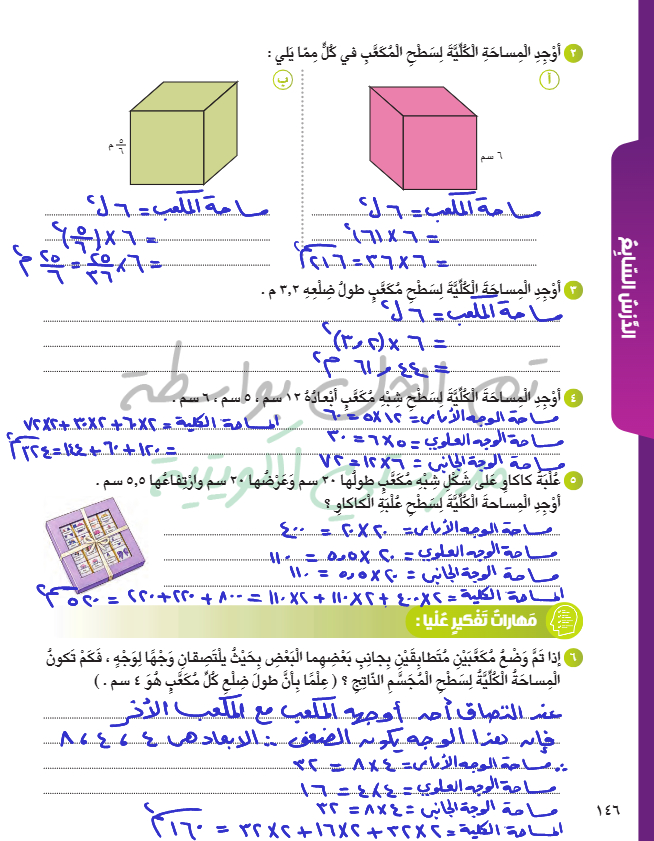 ٢ أَوْجِدِ الْمِساحَةَ الْكُلِّيَّةَ لِسَطْحِ الْمُكَعَّبِ في كُلٍّ مِمّا يَلي :
أ
ب
٦ سم
٥/٦ م
مساحة المكعب = ٦ ل²
= ٦ × (٦)²
= ٦ × ٣٦ = ٢١٦ سم²
مساحة المكعب = ٦ ل²
= ٦ × (٥/٦)²
= ٦ × ٢٥/٣٦ = ٢٥/٦ م²
٣ أَوْجِدِ الْمِساحَةَ الْكُلِّيَّةَ لِسَطْحِ مُكَعَّبٍ طولُ ضِلْعِهِ ٣,٢ م .
مساحة المكعب = ٦ ل²
= ٦ × (٣,٢)²
= ٦١,٤٤ م²
تم الحل بواسطة
٤ أَوْجِدِ الْمِساحَةَ الْكُلِّيَّةَ لِسَطْحِ شِبْهِ مُكَعَّبٍ أَبْعادُهُ ١٢ سم ، ٥ سم ، ٦ سم .
مساحة الوجه الأمامي = ١٢×٥ = ٦٠
مساحة الوجه العلوي = ٥×٦ = ٣٠
مساحة الوجه الجانبي = ٦×١٢ = ٧٢
المساحة الكلية = ٢×٦٠+٢×٣٠+٢×٧٢
= ١٢٠+٦٠+١٤٤=٣٢٤ سم²
الكويتية
٥ عُلْبَةُ كاكاوٍ عَلى شَكْلِ شِبْهِ مُكَعَّبٍ طولُها ٢٠ سم وَعَرْضُها ٢٠ سم وَارْتِفاعُها ٥,٥ سم .
أَوْجِدِ الْمِساحَةَ الْكُلِّيَّةَ لِسَطْحِ عُلْبَةِ الْكاكاوِ ؟
مساحة الوجه الأمامي = ٢٠×٢٠ = ٤٠٠
مساحة الوجه العلوي = ٢٠ ×٥,٥ = ١١٠
مساحة الوجه الجانبي = ٢٠ ×٥,٥ = ١١٠
المساحة الكلية = ٢×٤٠٠+٢×١١٠+٢×١١٠ = ٨٠٠ + ٢٢٠+ ٢٢٠ = ٥٢٠ سم²
مَهاراتُ تَفْكيرٍ عُلْيا :
٦ إِذا تَمَّ وَضْعُ مُكَعَّبَيْنِ مُتَطابِقَيْنِ بِجانِبِ بَعْضِهِما الْبَعْضِ بِحَيْثُ يَلْتَصِقانِ وَجْهًا لِوَجْهٍ ، فَكَمْ تَكونُ
الْمِساحَةُ الْكُلِّيَّةُ لِسَطْحِ الْمُجَسَّمِ النّاتِجِ ؟ ( عِلْمًا بِأَنَّ طولَ ضِلْعِ كُلِّ مُكَعَّبٍ هُوَ ٤ سم . )
عند التصاق أحد أوجه المكعب مع المكعب الآخر
فإنه هذا الوجه يكون الضعف ∴ الابعاد هي ٤ ، ٤ ، ٨
∴ مساحة الوجه الأمامي = ٤×٨ = ٣٢
مساحة الوجه العلوي = ٤×٤ = ١٦
مساحة الوجة الجانبي = ٤×٨ = ٣٢
المساحة الكلية = ٢×٣٢+٢×١٦+٢×٣٢ = ١٦٠ سم²
الدَّرْسُ السّابِعُ
١٤٦